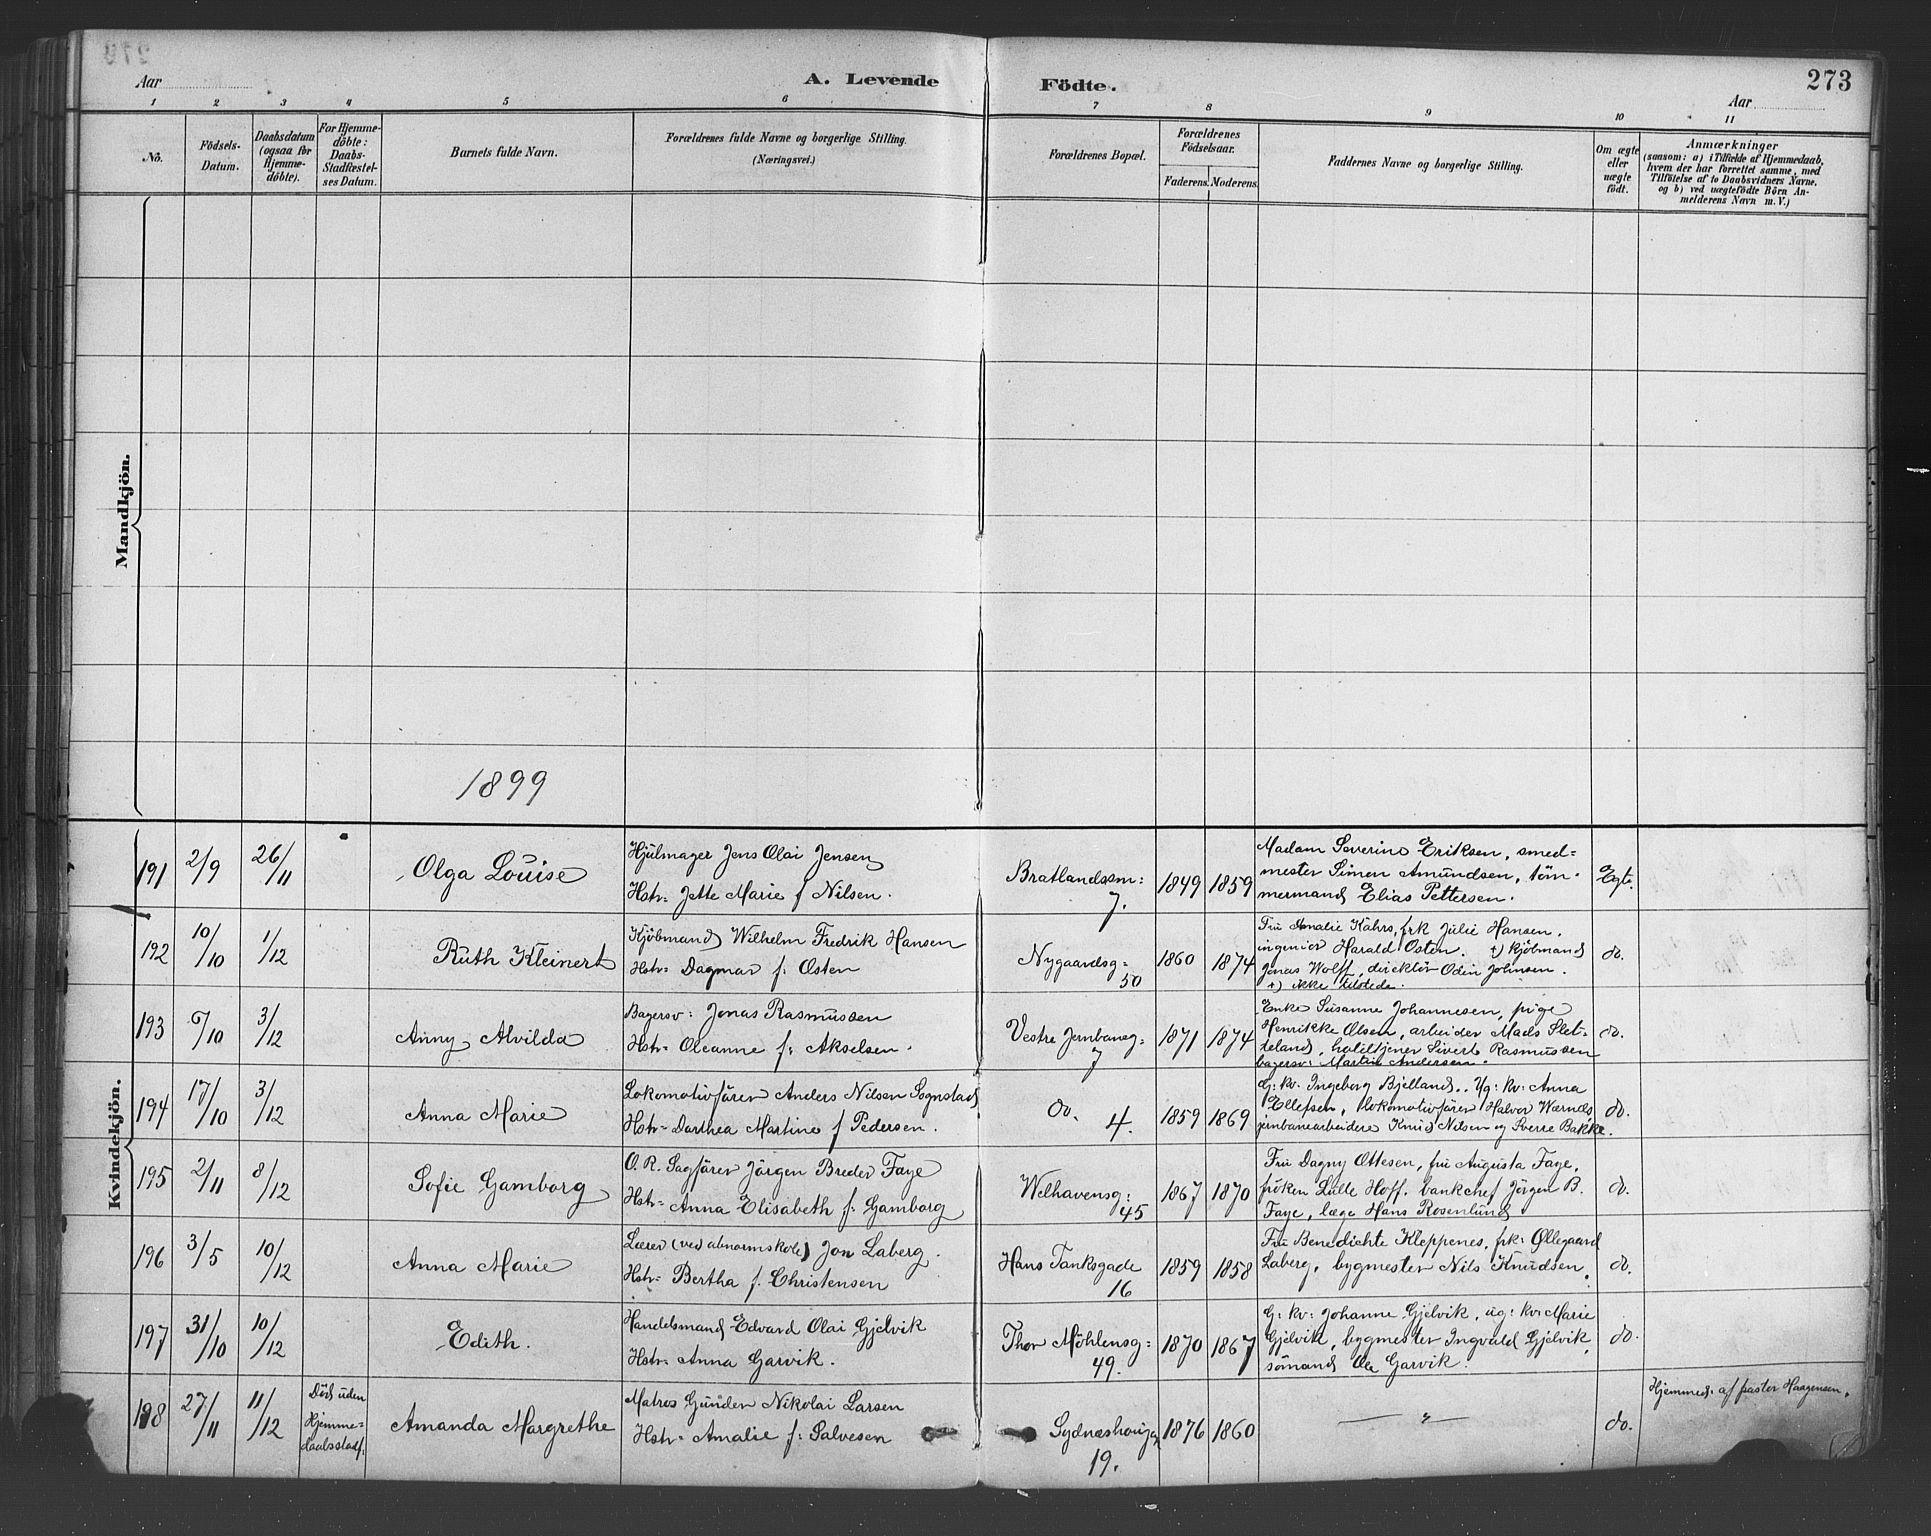 273
Aar
A. Levende Födte.
Aar
1 2 3 4 5 6 7 8 9 10 11
No.
Födsels-
Datum.
Daabsdatum
(ogsaa for
Hjemme-
döbte).
For Hjemme-
döbte:
Daabs-
Stadfæstel-
ses Datum.
Barnets fulde Navn.
Forældrenes fulde Navne og borgerlige Stilling.
(Næringsvei.)
Forældrenes Bopæl.
Forældrenes
Födselsaar.
Faderens. Moderens.
Faddernes Navne og borgerlige Stilling.
Om ægte
eller
uægte
født.
Anmærkninger
(saasom: a) i Tilfælde af Hjemmedaab,
hvem der har forrettet samme, med
Tilföielse af to Daabsvidners Navne,
og b) ved uægtefödte Börn An-
melderens Navn m. V.)
Mandkjön.
1899
Kvindekjön.
191
2/9
26/11
Olga Louise
Hjulmager Jens Olai Jensen
Hstr- Jette Marie f Nilsen.
Bratlandssm:
7.
1849 1859
Madam Severine Eriksen, smed=
mester Simen Amundsen, töm-
mermand Elias Pettersen.
Egte.
192
10/10
1/12
Ruth Kleinert
Kjöbmand Wilhelm Fredrik Hansen
Hstr- Dagmar f: Osten
Nygaardsg=
50
1860 1874
Fru Amalie Kahrs, frk Julie Hansen.
ingeniør Harald Osten. +) kjöbmand
Jonas Wolff, direktör Odin Johnsen.
+) ikke tilstede.
do.
193
6/10
3/12
Anny Alvilda
Bagersv: Jonas Rasmussen
Hstr- Oleanne f: Akselsen.
Vestre Jernbaneg=
7
1871 1874
Enke Susanne Johannesen, pige
Henrikke Olsen, arbeider Mads Slet-
teland, hoteltjener Sivert Rasmussen
bagersv: Martin Andersen.
do.
194
17/10
3/12
Anna Marie
Lokomotivförer Anders Nilsen Sognstad
Hstr- Dorthea Martine f Pedersen.
do. 4.
1859 1869
G: kv. Ingeborg Bjelland.. Ug: kv: Anna
Ellefsen, lokomotivförer Halvor Wernes,
jernbanearbeidere Knud Nilsen og Sverre Bakke.
do.
195
2/11
8/12
Sofie Gamborg
O. R. Sagförer Jörgen Breder Faye
Hstr- Anna Elisabeth f: Gamborg
Welhavensg:
45
1867 1870
Fru Dagny Ottesen, fru Augusta Faye,
fröken Lulle Hoff. bankchef Jörgen B.
Faye, læge Hans Rosenlund
do.
196
3/5
10/12
Anna Marie
Lærer (ved abnormskole) Jon Laberg.
Hstr- Bertha f. Christensen
Hans Tanksgade
16
1859 1858
Fru Benedichte Kleppenes, frk: Øllegaard
Laberg, bygmester Nils Knudsen.
do.
197
31/10
10/12
Edith.
Handelsmand Edvard Olai Gjelvik
Hstr- Anna Garvik.
Thor Möhlensg=
49.
1870 1867
G: kv: Johanne Gjelvik, ug: kv: Marie
Gjelvik, bygmester Ingvald Gjelvik,
sömand Ole Garvik.
do.
198
27/11
11/12
Död uden
Hjemme=
daabsstadf:
Amanda Margrethe
Matros Gunder Nikolai Larsen
Hstr- Amalie f: Salvesen
Sydneshaug
19.
1876 1860
— " —
do.
Hjemmed: af pastor Haagensen.